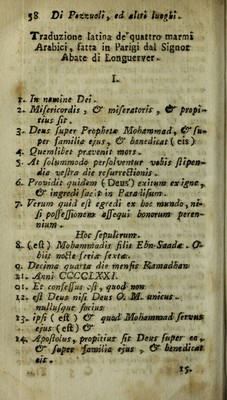 58 Di Pozzuoli, ed altri luoghi.
Traduzione latina de' quattro marmi
Arabici, fatta in Parigi dal Signor
Abate di Longuerver.
I.
1. In nomine Dei.
2. Misericordis, & miseratoris, & propi-
tius sit.
3. Deus super Prophetæ Mohammad, & su-
per familia ejus, & benedicat (eis)
4. Quemlibet prævenit mors.
5. At solummodo persolventur vobis stipen-
dia vestra die resurrectionis.
6. Providit quidem (Deus) exitum ex igne,
& ingredi facit in Paradisum.
7. Verum quid est egredi ex hoc mundo, ni-
si possessionem assequi bonorum peren-
nium.
Hoc sepulcrum.
8. (est) Mohammadis filii Ebn-Saadæ. O-
biit nocte feriæ sextæ.
9. Decima quarta die mensis Ramadhan
21. Anni CCCCLXXI.
01. Et confessus est, quod non
12. est Deus nisi Deus O. M. unicus
nullusque socius
13. ipsi (est) & quod Mohammad servus
ejus (est) &
14. Apostolus, propitius sit Deus super eo,
& super familia ejus, & benedicat
eis.
15.